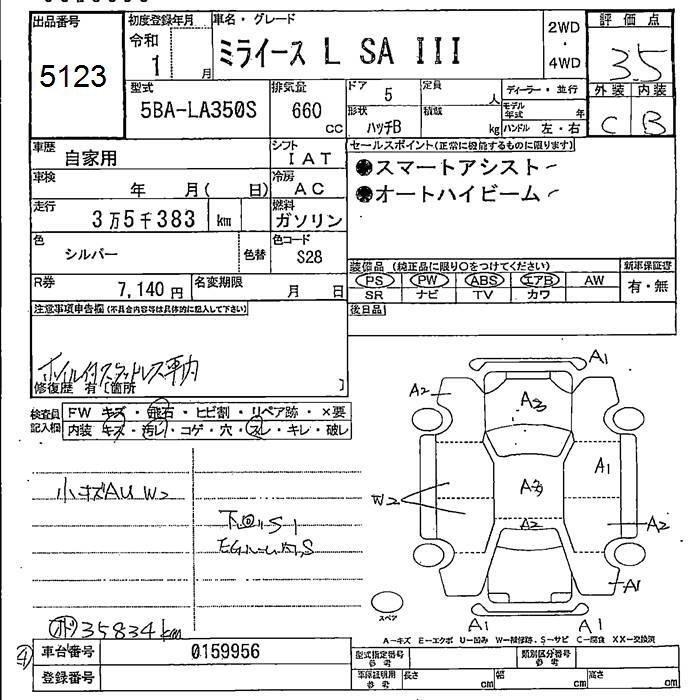 出品番号 初度登録年月 車名・グレード 2WD ・ 4WD 評価点
5123 令和 1 月 ミライース L SA III 3.5
外装 内装
C B
型式 5BA-LA350S 排気量 660 cc ドア 5 定員 人 ディーラー・並行
形状 ハッチB 積載 kg モデル年式 年
ハンドル 左・右
車歴 自家用 シフト IAT セールスポイント(正常に機能するものに限ります)
車検 年 月( 日) 冷房 AC ●スマートアシスト
走行 3万5千383 km 燃料 ガソリン ●オートハイビーム
色 シルバー 色替 色コード S28
装備品 (純正品に限り○をつけてください) 新車保証書
R券 7,140円 名変期限 月 日 PS PW ABS エアB AW 有・無
SR ナビ TV カワ
注意事項申告欄(不具合内容等は具体的に記入して下さい) 後日品
ホイル付スタッドレス車内
修復歴 有〔箇所 〕
検査員記入欄 FW キズ・飛石・ヒビ割・リペア跡・×要
内装 キズ・汚レ・コゲ・穴・スレ・キレ・破レ
A1
A2 A3
A1
小キズAU W2 W2 A3
下回リS1 A2 A2
A1
スペア A1 A1
ホド 35834km
A-キズ E-エクボ U-凹み W-補修跡 S-サビ C-腐食 XX-交換済
④ 車台番号 0159956 型式指定番号 参考 類別区分番号 参考
登録番号 車庫証明用 参考 長さ cm 幅 cm 高さ cm